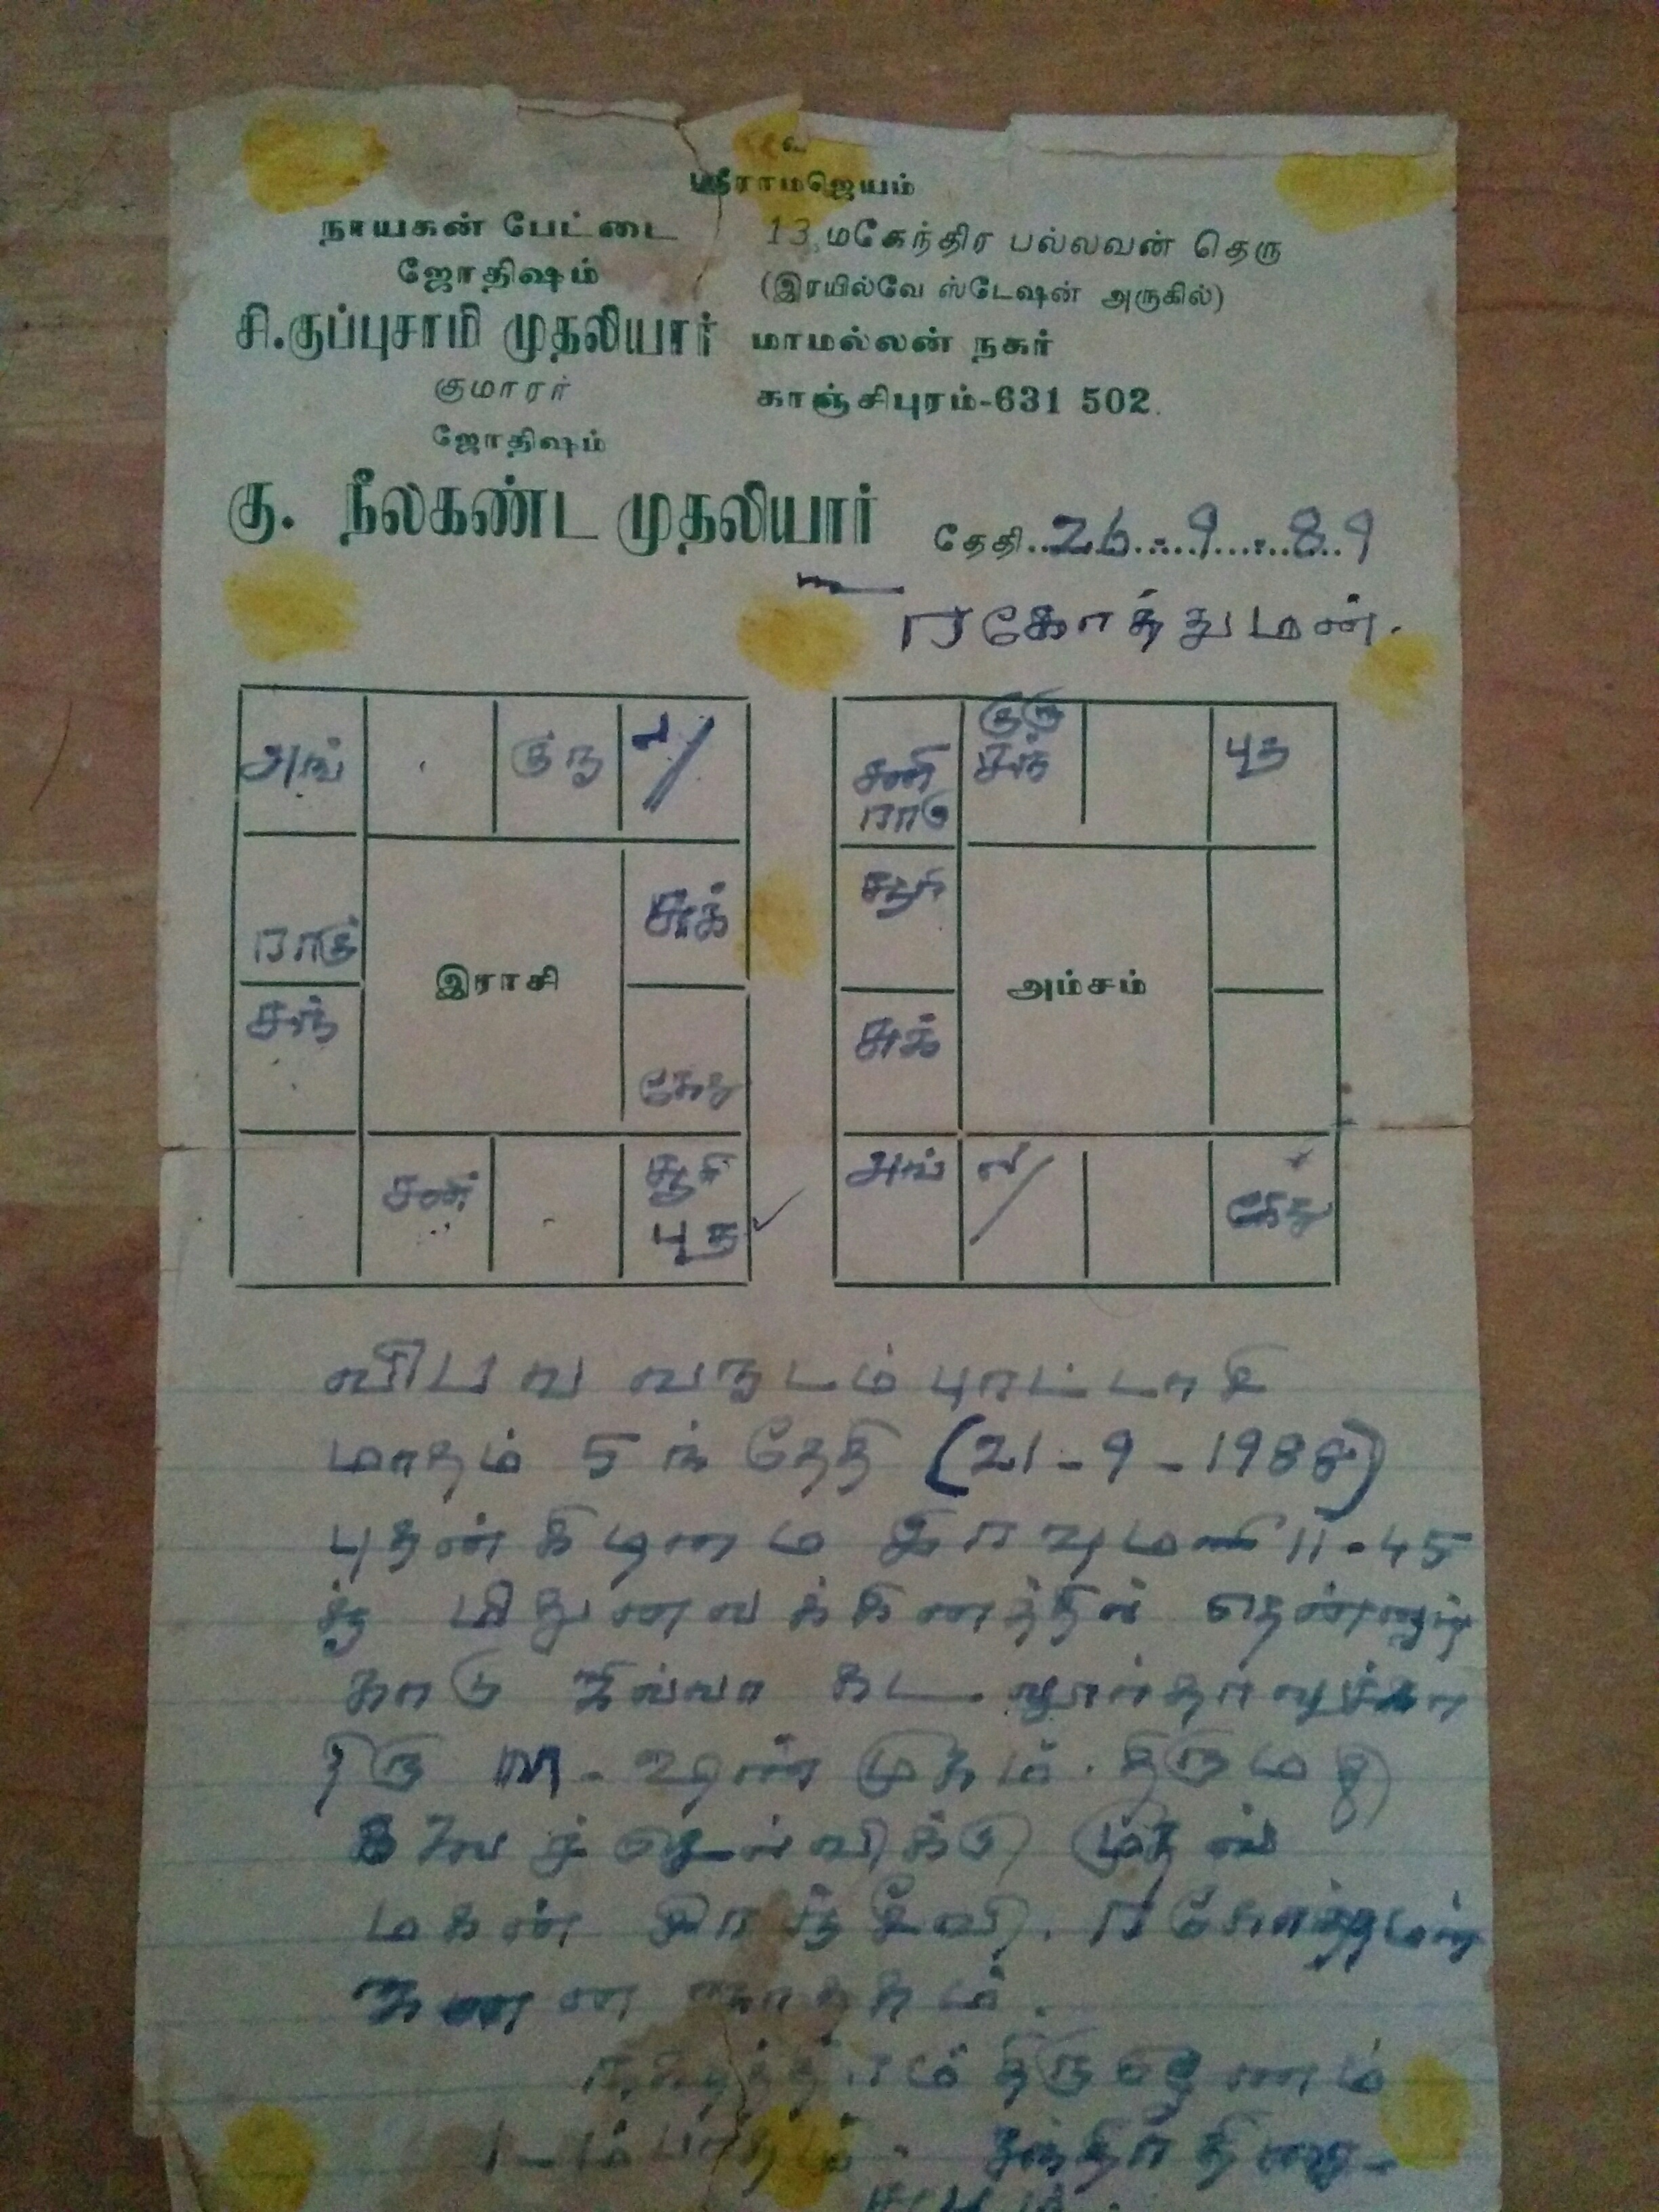 உ
ஸ்ரீராமஜெயம்
நாயகன் பேட்டை
ஜோதிஷம்
சி.குப்புசாமி முதலியார்
குமாரர்
ஜோதிஷம்
கு. நீலகண்ட முதலியார்
13, மகேந்திர பல்லவன் தெரு
(இரயில்வே ஸ்டேஷன் அருகில்)
மாமல்லன் நகர்
காஞ்சிபுரம்-631 502.
தேதி 26 . 9 . 89
ரகோத்துமன்.
அங் குரு ல/
ராகு சுக்
இராசி
சந் கேது
சனி சூரி
புத
சனி ராகு குரு சந் புத
சூரி
அம்சம்
சுக்
அங் ல/ கேது
விபவ வருடம் புரட்டாசி
மாதம் 5 ந் தேதி (21-9-1988)
புதன் கிழமை இரவு மணி 11-45
க்கு மிதுன லக்கினத்தில்
ஜில்லா
திரு முகம். திருமதி
முதல்
மகன் ரகோத்துமன்
ஜாதகம்.
நக்ஷத்திரம் திருவோணம்
1-ம் பாதம்.